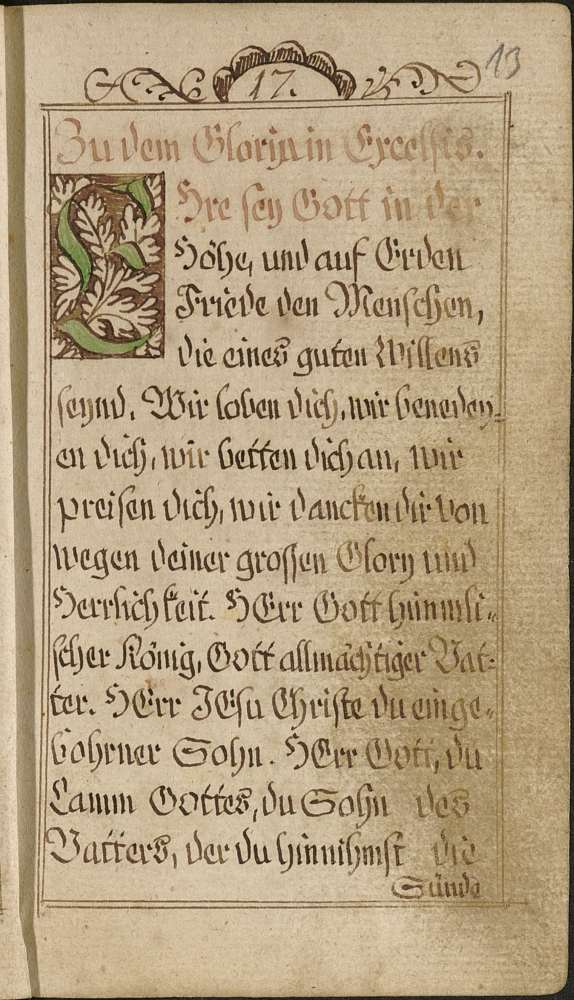 13
17.
Zu dem Gloria in Excelsis.
Ehre sey Gott in der
Höhe, und auf Erden
Friede den Menschen,
die eines guten Willens
seynd. Wir loben dich, wir benedey-
en dich, wir betten dich an, wir
preisen dich, wir dancken dir von
wegen deiner grossen Glory und
Herrlichkeit. HErr Gott himmli-
scher König, Gott allmächtiger Vat-
ter. HErr JEsu Christe du einge-
bohrner Sohn. HErr Gott, du
Lamm Gottes, du Sohn des
Vatters, der du hinnihmst die
Sünde